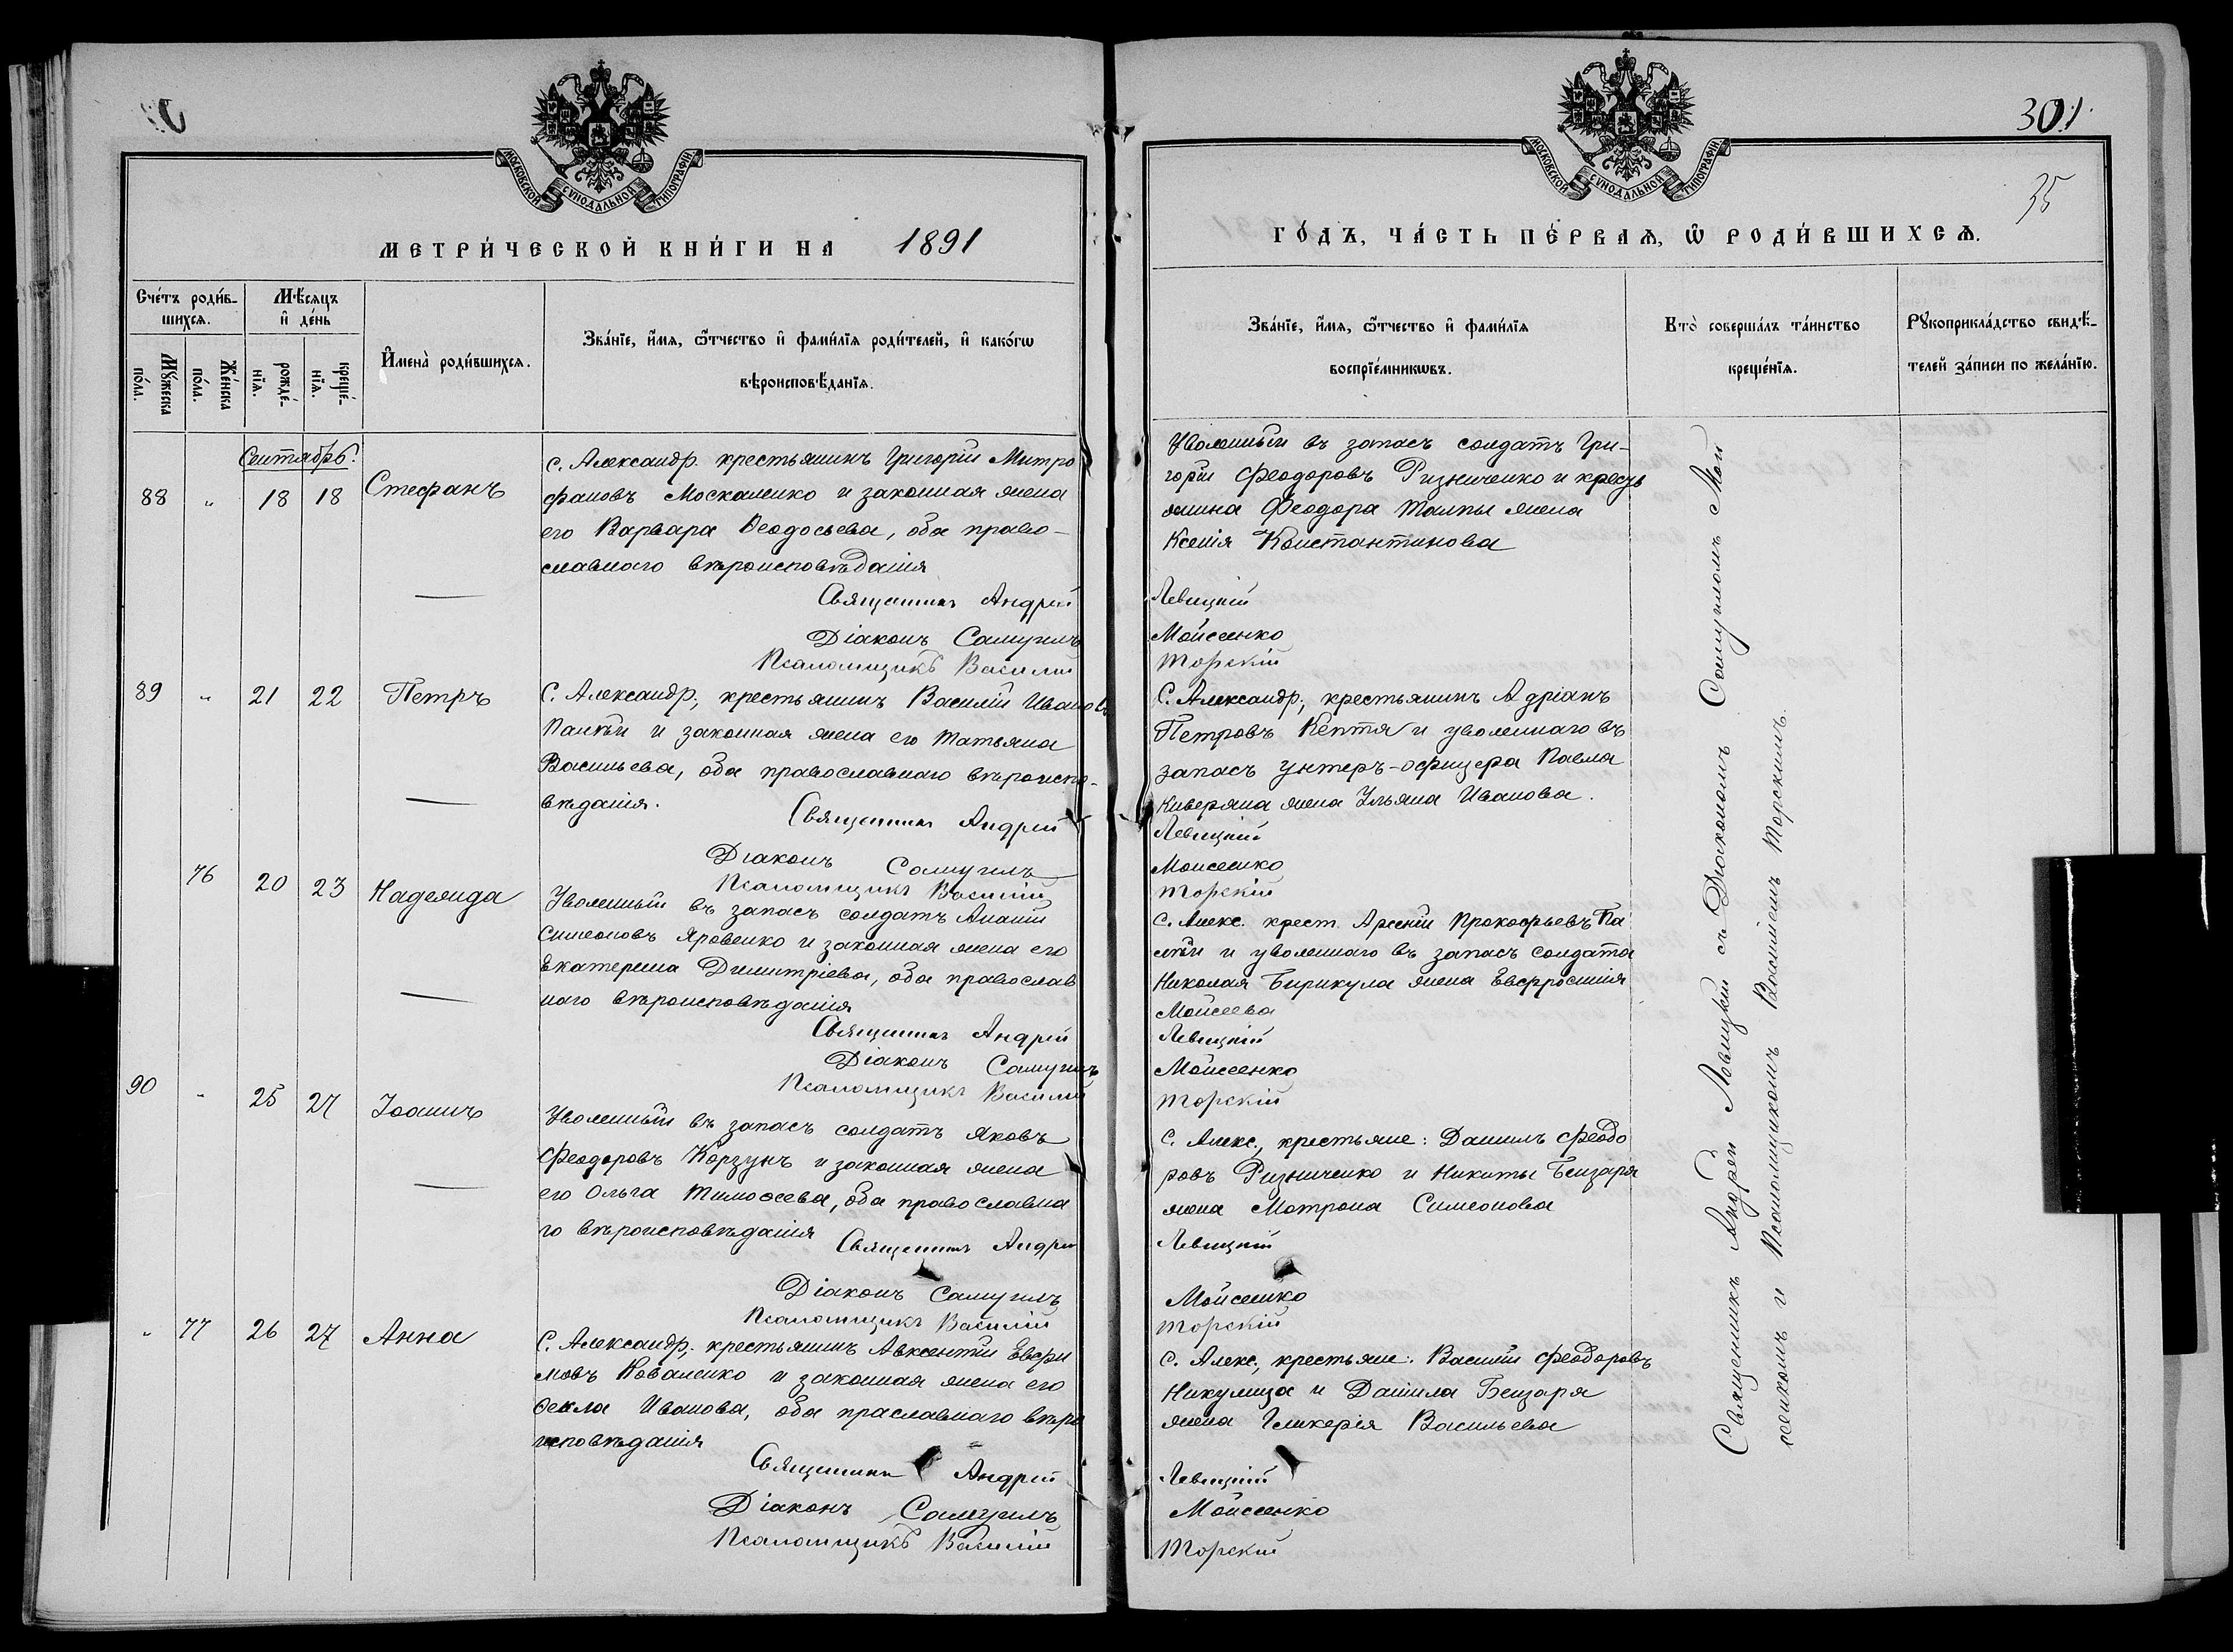 МОСКОВСКОЙ СУНОДАЛЬНОЙ ТИПОГРАФІИ
МЕТРИ́ЧЕСКОЙ КНИ́ГИ НА 1891
Сче́тъ роди́в-
шихсѧ.
Мѣ́сѧцъ
и҆ де́нь
Мꙋ́жеска
по́ла.
Же́нска
по́ла.
рожде́-
нїѧ.
креще́-
нїѧ.
И҆мена̀ роди́вшихсѧ.
Зва́нїе, и҆́мѧ, ѻ҆́тчество и҆ фами́лїѧ роди́телей, и҆ како́гѡ
вѣроисповѣ́данїѧ.
Сентябрь.
88 " 18 18 Стефанъ
С. Александр. крестьянинъ Григорій Митро
фановъ Москаленко и законная жена
его Варвара Ѳеодосьева, оба право-
славнаго вѣроисповѣданія
Священникъ Андрей
Діаконъ Самуилъ
Псаломщикъ Василій
89 " 21 22 Петръ
С. Александр., крестьянинъ Василій Ивановъ
Паңѣй и законная жена его Татьяна
Васильева, оба православнаго вѣроиспо-
вѣданія.
Священникъ Андрей
Діаконъ Самуилъ
Псаломщикъ Василій
76 20 23 Надежда
Уволенный въ запасъ солдатъ Ананій
Симеоновъ Яровенко и законная жена его
Екатерина Димитріева, оба православ
наго вѣроисповѣданія
Священникъ Андрей
Діаконъ Самуилъ
Псаломщикъ Василій
90 " 25 27 Іоаннъ
Уволенный въ запасъ солдатъ Яковъ
Феодоровъ Корзунъ и законная жена
его Ольга Тимоѳеева, оба православна
го вѣроисповѣданія
Священникъ Андрей
Діаконъ Самуилъ
Псаломщикъ Василій
" 77 26 27 Анна
С. Александр., крестьянинъ Авксентій Евфи
мовъ Коваленко и законная жена его
Ѳекла Иванова, оба праславнаго вѣро
исповѣданія
Священникъ Андрей
Діаконъ Самуилъ
Псаломщикъ Василій
301
35
МОСКОВСКОЙ СУНОДАЛЬНОЙ ТИПОГРАФІИ
ГО́ДЪ, ЧА́СТЬ ПЕ́РВАѦ, Ѡ҆ РОДИ́ВШИХСѦ.
Зва́нїе, и҆́мѧ, ѻ҆́тчество и҆ фами́лїѧ
воспрїе́мникѡвъ.
Кто̀ соверша́лъ та́инство
креще́нїѧ.
Рꙋкоприкла́дство свидѣ́-
телей за́писи по жела́нїю.
Уволенный въ запасъ солдатъ Гри-
горій Феодоровъ Ризниченко и кресть
янина Феодора Талпы жена
Ксенія Константинова
Левицкій
Мойсеенко
Торскій
С. Александр., крестьянинъ Адріанъ
Петровъ Кептя и уволеннаго въ
запасъ унтеръ-офицера Павла
Киверяна жена Ульяна Иванова.
Левицкій
Моисеенко
Торскій
С. Алекс. крест. Арсеній Прокофьевъ Па
и уволеннаго въ запасъ солдата
Николая Бирикула жена Евфросинія
Мойсеева
Левицкій
Мойсеенко
Торскій
С. Алекс., крестьяне: Даніилъ Феодо
ровъ Ризниченко и Никиты Бензаря
жена Мотрона Симеонова
Левицкій
Мойсеенко
Торскій
С. Алекс., крестьяне: Василій Феодоровъ
Никулица и Даніила Бензаря
жена Гликерія Васильева
Левицкій
Мойсеенко
Торскій
Священникъ Андрей Левицкій съ Діакономъ Самуиломъ Мой
сеенкомъ и Псаломщикомъ Василіемъ Торскимъ.